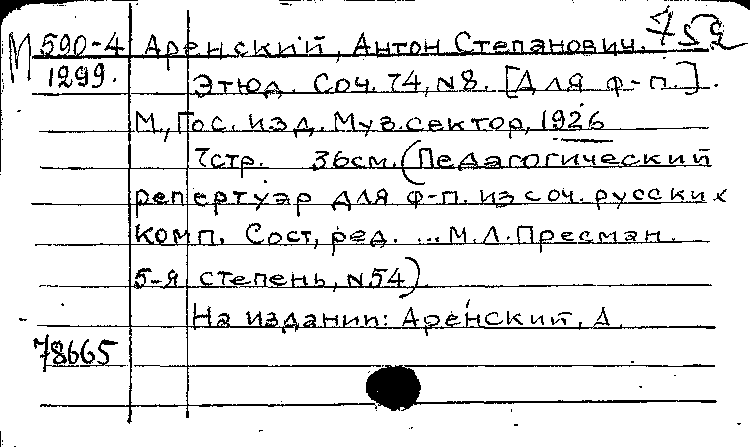 М 590-4 Аренский, Антон Степанович. 752
1299. Этюд. Соч. 74, N8. [Для ф-п.].
М., Гос. изд. Муз. сектор, 1926
7 стр. 36 см. (Педагогический
репертуар для ф-п. из соч. русских
комп. Сост, ред. ... М.Л. Пресман.
5-я степень, N54).
На издании: Аренский, А.
78665